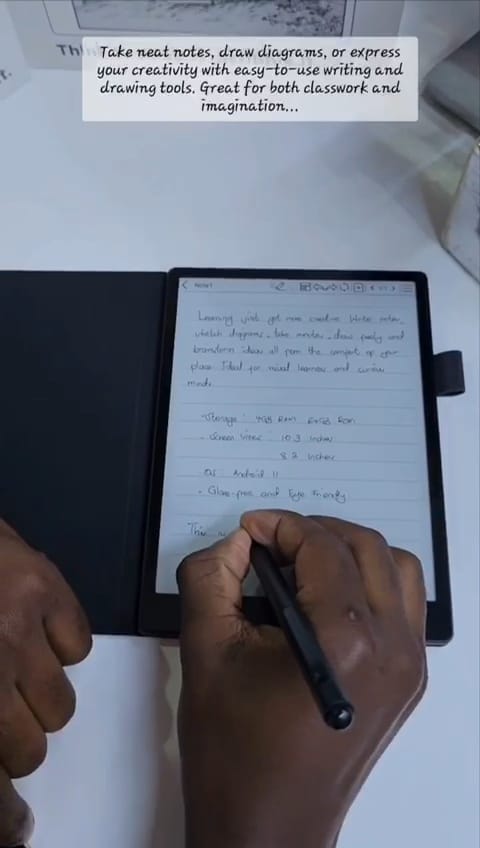 Take neat notes, draw diagrams, or express
your creativity with easy-to-use writing and
drawing tools. Great for both classwork and
imagination...
Note1
Learning just got more creative. Write notes,
sketch diagrams, take notes, draw and
brainstorm ideas all from the comfort of your
place. Ideal for visual learners and curious
minds.
Storage: 4GB RAM 64GB Rom
- Screen sizes: 10.3 Inches
8.2 Inches
OS Android 11
- Glare-free and Eye Friendly